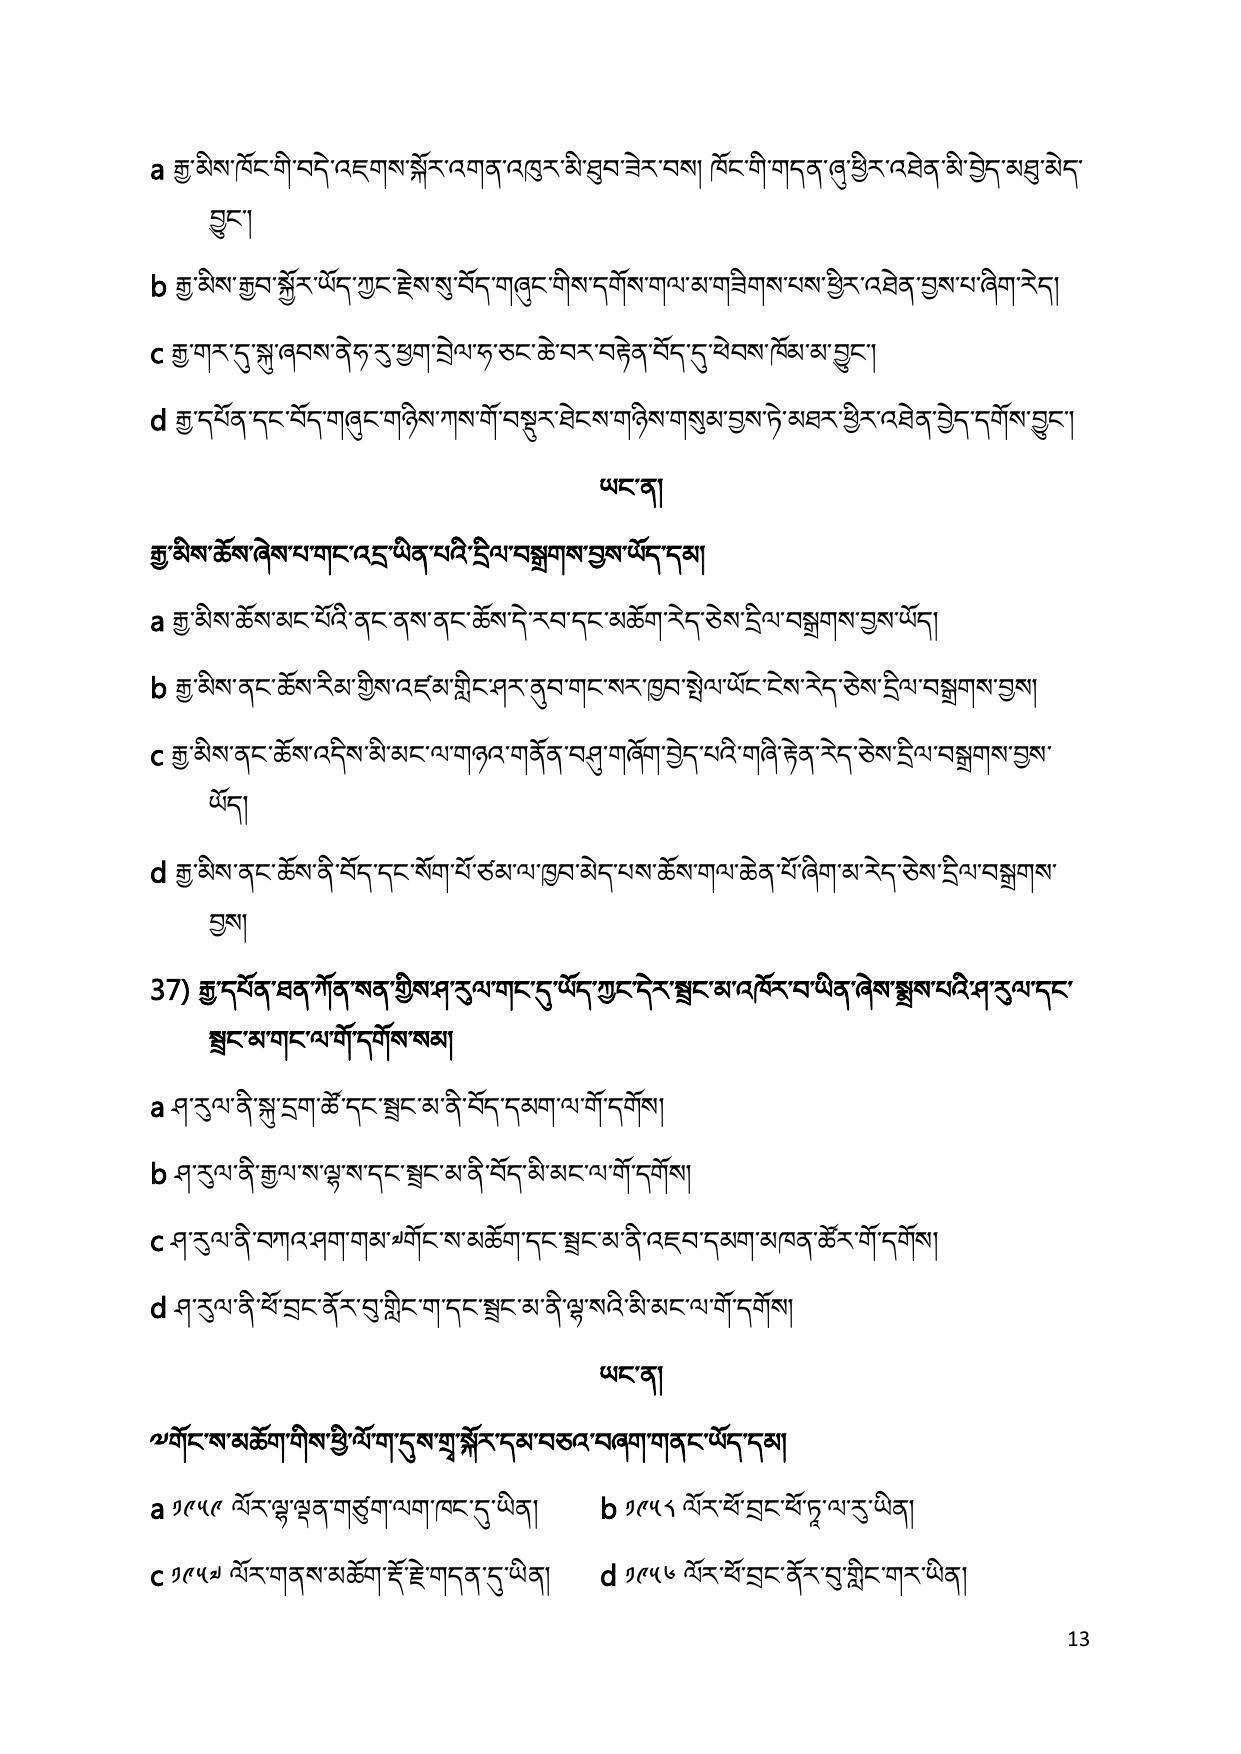 a རྒྱ་མིས་ཁོང་གི་བདེ་འཇགས་སྐོར་འགན་འཁུར་མི་ཐུབ་ཟེར་བས། ཁོང་གི་གདན་ཞུ་ཕྱིར་འཐེན་མི་བྱེད་མཐུ་མེད་
བྱུང་།
b རྒྱ་མིས་རྒྱབ་སྐྱོར་ཡོད་ཀྱང་རྗེས་སུ་བོད་གཞུང་གིས་དགོས་གལ་མ་གཟིགས་པས་ཕྱིར་འཐེན་བྱས་པ་ཞིག་རེད།
c རྒྱ་གར་དུ་སྐུ་ཞབས་ནེཧ་རུ་ཕྱག་བྲེལ་ཧ་ཅང་ཆེ་བར་བརྟེན་བོད་དུ་ཕེབས་ཁོམ་མ་བྱུང་།
d རྒྱ་དཔོན་དང་བོད་གཞུང་གཉིས་ཀས་གོ་བསྡུར་ཐེངས་གཉིས་གསུམ་བྱས་ཏེ་མཐར་ཕྱིར་འཐེན་བྱེད་དགོས་བྱུང་།
ཡང་ན།
རྒྱ་མིས་ཆོས་ཞེས་པ་གང་འདྲ་ཡིན་པའི་དྲིལ་བསྒྲགས་བྱས་ཡོད་དམ།
a རྒྱ་མིས་ཆོས་མང་པོའི་ནང་ནས་ནང་ཆོས་དེ་རབ་དང་མཆོག་རེད་ཅེས་དྲིལ་བསྒྲགས་བྱས་ཡོད།
b རྒྱ་མིས་ནང་ཆོས་རིམ་གྱིས་འཛམ་གླིང་ཤར་ནུབ་གང་སར་ཁྱབ་སྤེལ་ཡོང་ངེས་རེད་ཅེས་དྲིལ་བསྒྲགས་བྱས།
c རྒྱ་མིས་ནང་ཆོས་འདིས་མི་མང་ལ་གཉའ་གནོན་བཤུ་གཞོག་བྱེད་པའི་གཞི་རྟེན་རེད་ཅེས་དྲིལ་བསྒྲགས་བྱས་
ཡོད།
d རྒྱ་མིས་ནང་ཆོས་ནི་བོད་དང་སོག་པོ་ཙམ་ལ་ཁྱབ་མེད་པས་ཆོས་གལ་ཆེན་པོ་ཞིག་མ་རེད་ཅེས་དྲིལ་བསྒྲགས་
བྱས།
37) རྒྱ་དཔོན་ཐན་ཀོན་སན་གྱིས་ཤ་རུལ་གང་དུ་ཡོད་ཀྱང་དེར་སྦྲང་མ་འཁོར་བ་ཡིན་ཞེས་སྨྲས་པའི་ཤ་རུལ་དང་
སྦྲང་མ་གང་ལ་གོ་དགོས་སམ།
a ཤ་རུལ་ནི་སྐུ་དྲག་ཚོ་དང་སྦྲང་མ་ནི་བོད་དམག་ལ་གོ་དགོས།
b ཤ་རུལ་ནི་རྒྱལ་ས་ལྷ་ས་དང་སྦྲང་མ་ནི་བོད་མི་མང་ལ་གོ་དགོས།
c ཤ་རུལ་ནི་བཀའ་ཤག་གམ་༧གོང་ས་མཆོག་དང་སྦྲང་མ་ནི་འཇབ་དམག་མཁན་ཚོར་གོ་དགོས།
d ཤ་རུལ་ནི་ཕོ་བྲང་ནོར་བུ་གླིང་ག་དང་སྦྲང་མ་ནི་ལྷ་སའི་མི་མང་ལ་གོ་དགོས།
ཡང་ན།
༧གོང་ས་མཆོག་གིས་ཕྱི་ལོ་ག་དུས་གྲྭ་སྐོར་དམ་བཅའ་བཞག་གནང་ཡོད་དམ།
a ༡༩༥༩ ལོར་ལྷ་ལྡན་གཙུག་ལག་ཁང་དུ་ཡིན། b ༡༩༥༨ ལོར་ཕོ་བྲང་ཕོ་ཏཱ་ལ་རུ་ཡིན།
c ༡༩༥༧ ལོར་གནས་མཆོག་རྡོ་རྗེ་གདན་དུ་ཡིན། d ༡༩༥༦ ལོར་ཕོ་བྲང་ནོར་བུ་གླིང་གར་ཡིན།
13